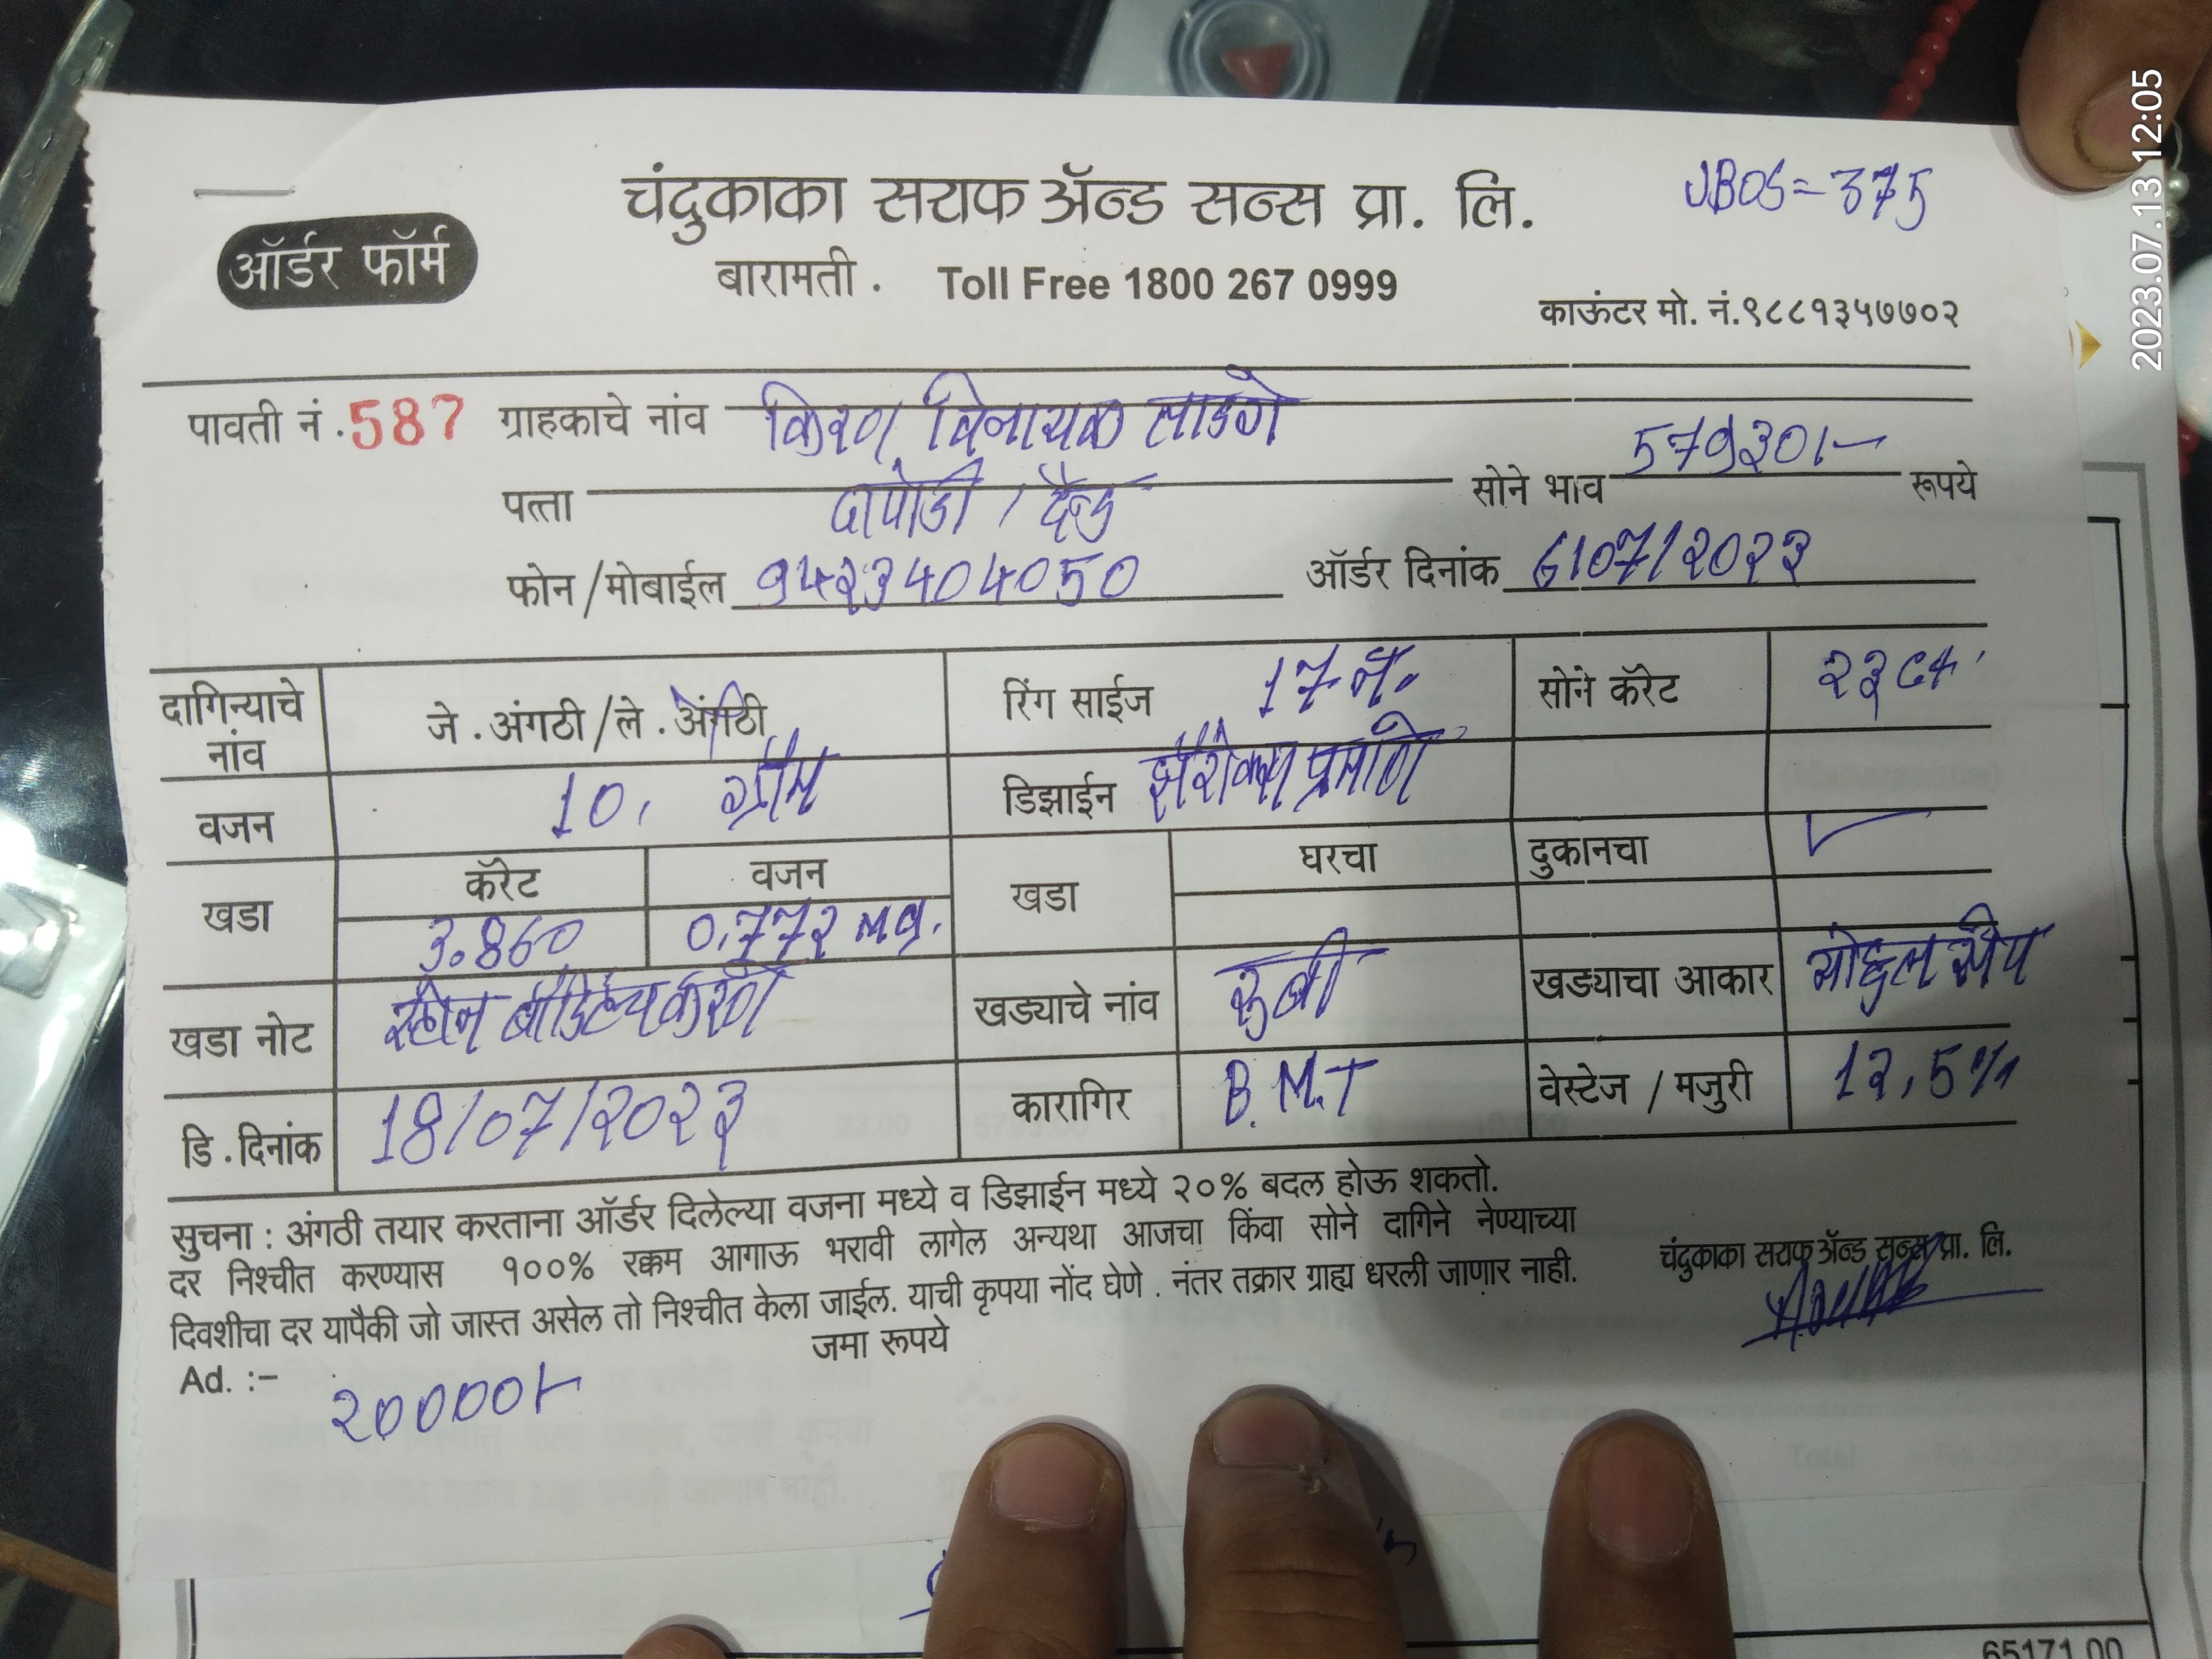 2023.07.13 12:05
UBOS=375
चंदुकाका सराफ अ‍ॅन्ड सन्स प्रा. लि.
ऑर्डर फॉर्म
बारामती. Toll Free 1800 267 0999
काऊंटर मो. नं.९८८१३५७७०२
पावती नं.587 ग्राहकाचे नांव किरण विनायक
पत्ता दापोडी / दौन्ड सोने भाव 57930/- रूपये
फोन/मोबाईल 9४२3४0४050 ऑर्डर दिनांक 6/07/२0२३
दागिन्याचे नांव जे.अंगठी/ले.अंगठी रिंग साईज 17 नं. सोने कॅरेट २३ ct
वजन 10. ग्रॅम डिझाईन झेरॉक्स प्रमाणे
खडा कॅरेट वजन खडा घरचा दुकानचा ✓
3.860 0.77२ mg.
खडा नोट स्टोन बॉडीटच करणे खड्याचे नांव रुबी खड्याचा आकार
डि.दिनांक 18/07/२0२३ कारागिर B.M.T वेस्टेज / मजुरी 1२.5%
सुचना : अंगठी तयार करताना ऑर्डर दिलेल्या वजना मध्ये व डिझाईन मध्ये २०% बदल होऊ शकतो.
दर निश्चीत करण्यास १००% रक्कम आगाऊ भरावी लागेल अन्यथा आजचा किंवा सोने दागिने नेण्याच्या
दिवशीचा दर यापैकी जो जास्त असेल तो निश्चीत केला जाईल. याची कृपया नोंद घेणे . नंतर तक्रार ग्राह्य धरली जाणार नाही.
चंदुकाका सराफ अ‍ॅन्ड सन्स प्रा. लि.
जमा रूपये
Ad. :-
२0000/-
Total
65171.00